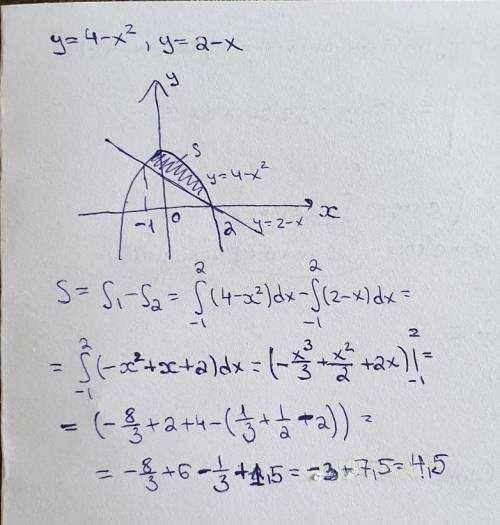 y=4-x², y=2-x
y
S
y=4-x²
-1 0 2 y=2-x x
S = S₁-S₂ = ∫₋₁² (4-x²)dx - ∫₋₁² (2-x)dx =
= ∫₋₁² (-x²+x+2)dx = (-x³/3 + x²/2 + 2x)|₋₁² =
= (-8/3 + 2 + 4 - (1/3 + 1/2 - 2)) =
= -8/3 + 6 - 1/3 + 1,5 = -3 + 7,5 = 4,5